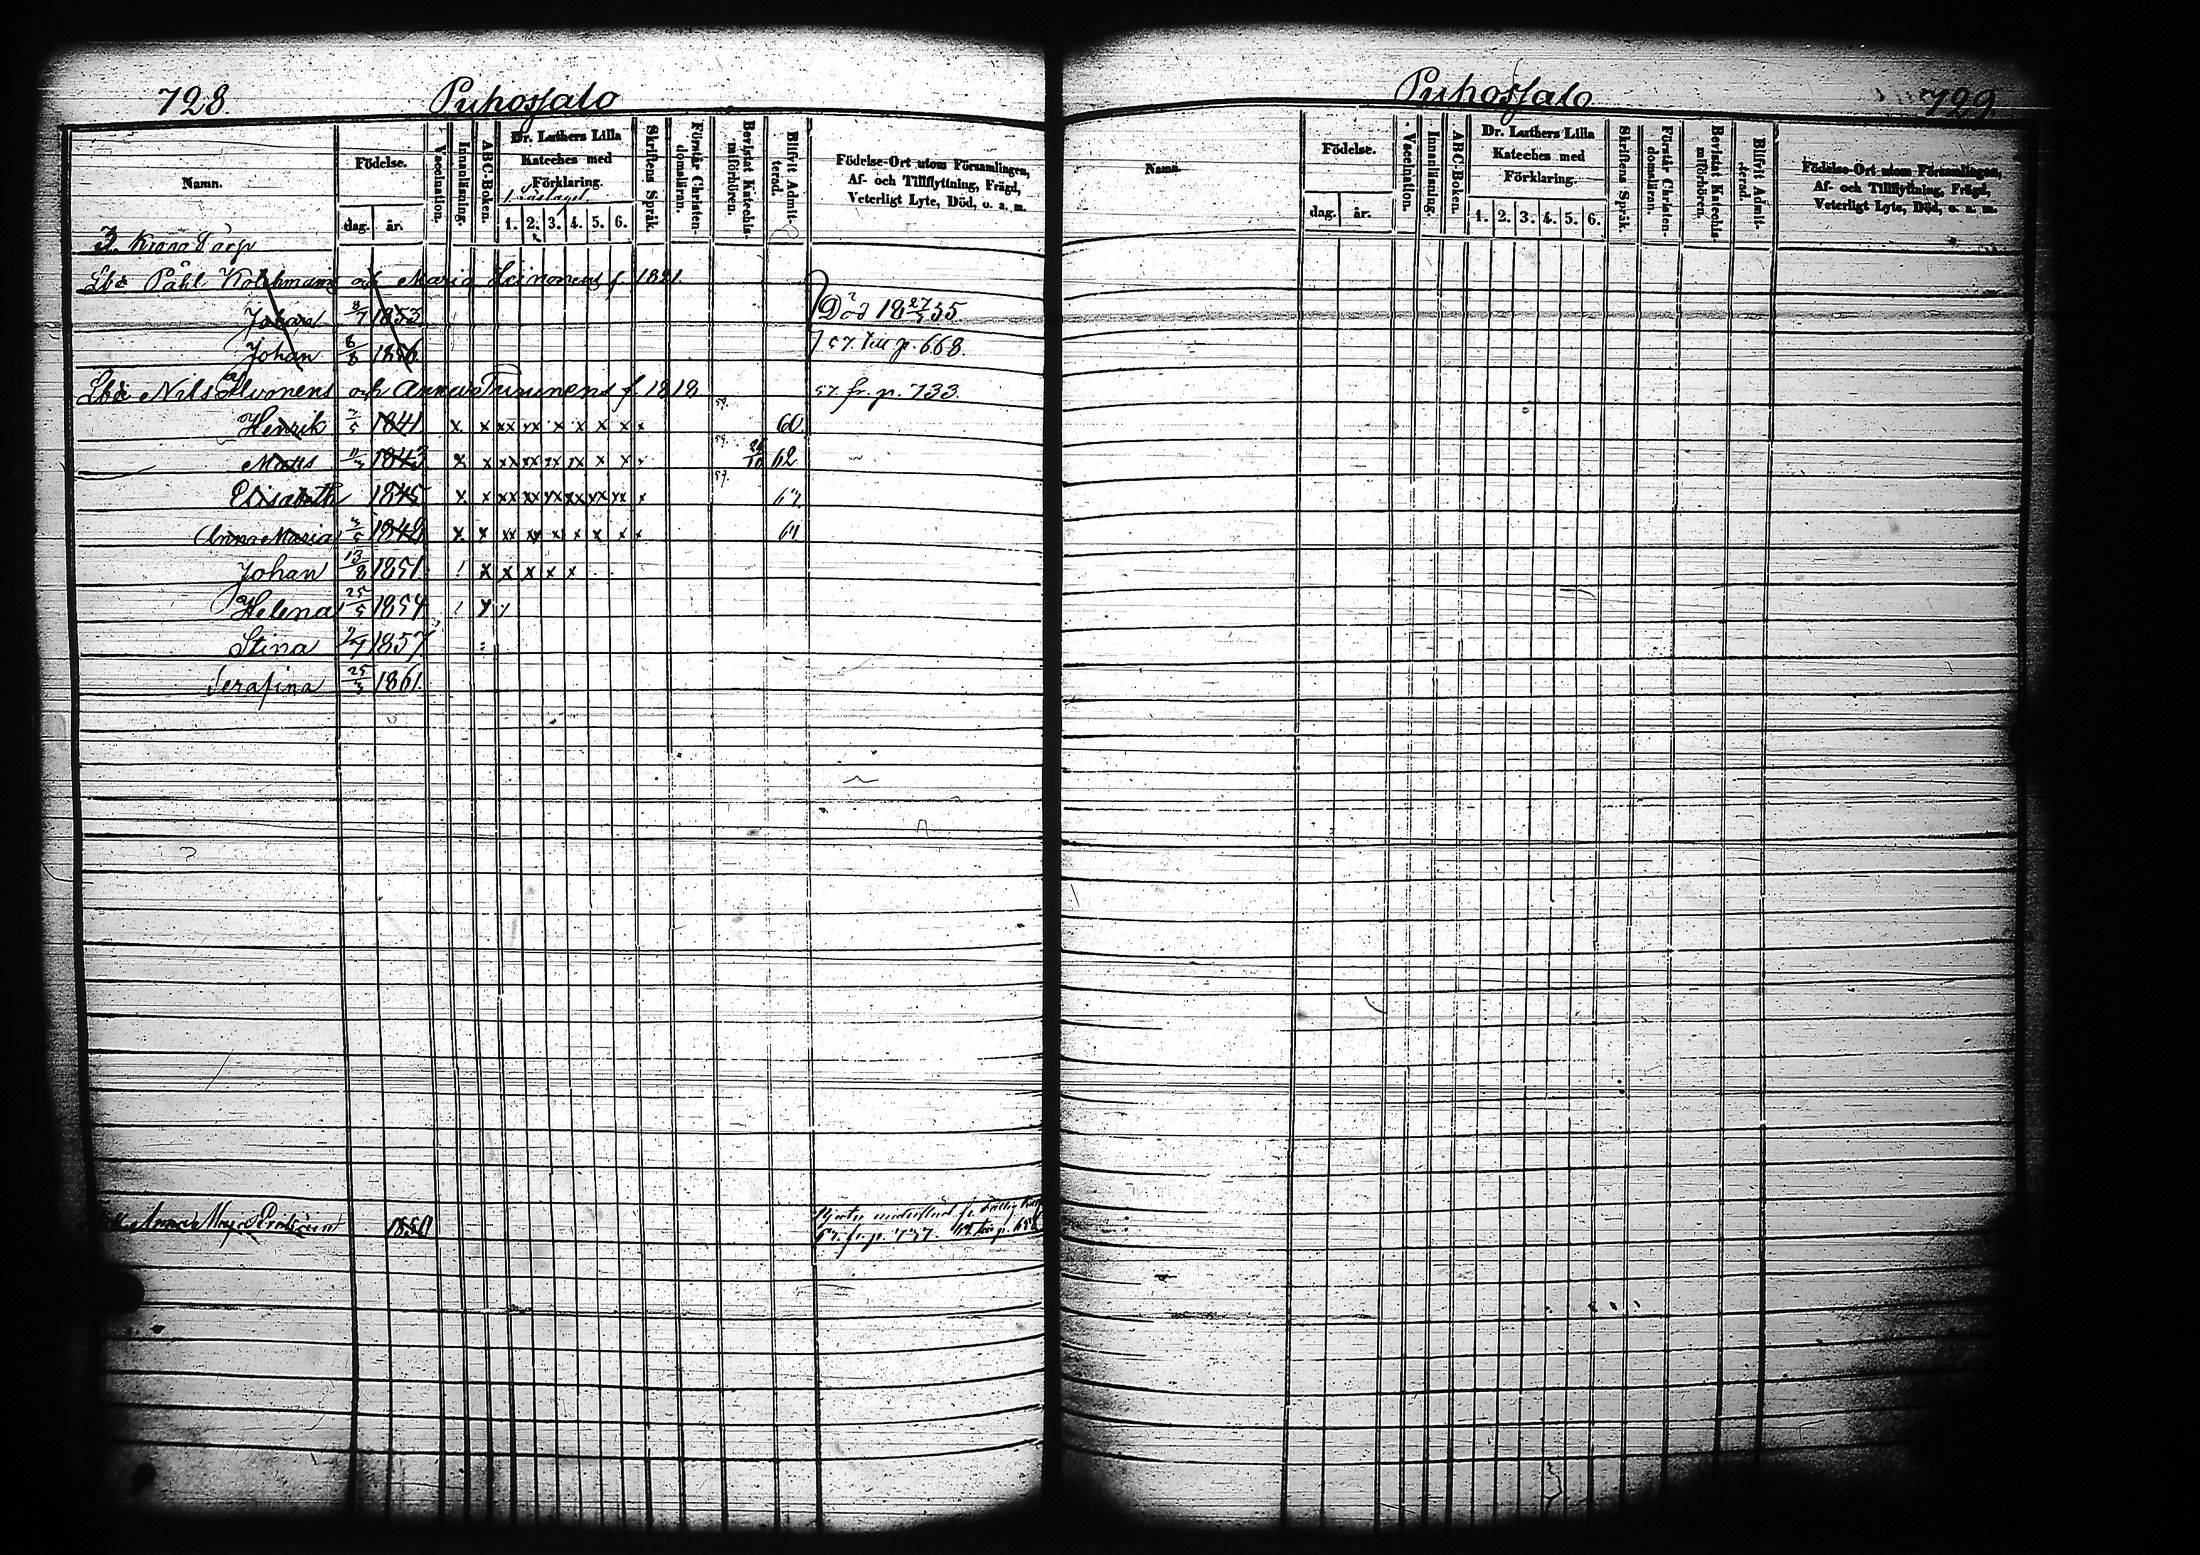 728.
Puhossalo
Namn.
Födelse.
dag. år.
Vaccination.
Innanläsning.
ABC-Boken.
Dr. Luthers Lilla
Kateches med
Förklaring.
1. 2. 3. 4. 5. 6.
Skriftens Språk.
Förstår Christen-
domsläran.
Bevistat Katechis-
miförhören.
Blifvit Admit-
terad.
Födelse-Ort utom Församlingen,
Af- och Tillflyttning, Frägd,
Veterligt Lyte, Död, o. s. m.
3. Krono Torp
Lbd Påhl Kolehmains och Maria Heinonens f. 1821.
Johan 8/7 1853. Död 18 27/5 55
Johan 6/8 1856 57. till p. 668.
Lbd Nils Alvonens och Anna Turunens f. 1818 57. fr. p. 733.
Henrik 1841. x. x xx xx x x x x x 60.
Matts 1843 59. 26/10 62
Elisabeth 1845 57.
Anna Maria 1848 64
Johan 13/8 1851. ! x x x x x
Helena 25/5 1854
Stina 1857
Serafina 25/3 1861.
Anna 1850
fr. p. 737.
Puhossalo
729.
Namn.
Födelse.
dag. år.
Vaccination.
Innanläsning.
ABC-Boken.
Dr. Luthers Lilla
Kateches med
Förklaring.
1. 2. 3. 4. 5. 6.
Skriftens Språk.
Förstår Christen-
domsläran.
Bevistat Katechis-
miförhören.
Blifvit Admit-
terad.
Födelse-Ort utom Församlingen,
Af- och Tillflyttning, Frägd,
Veterligt Lyte, Död, o. s. m.